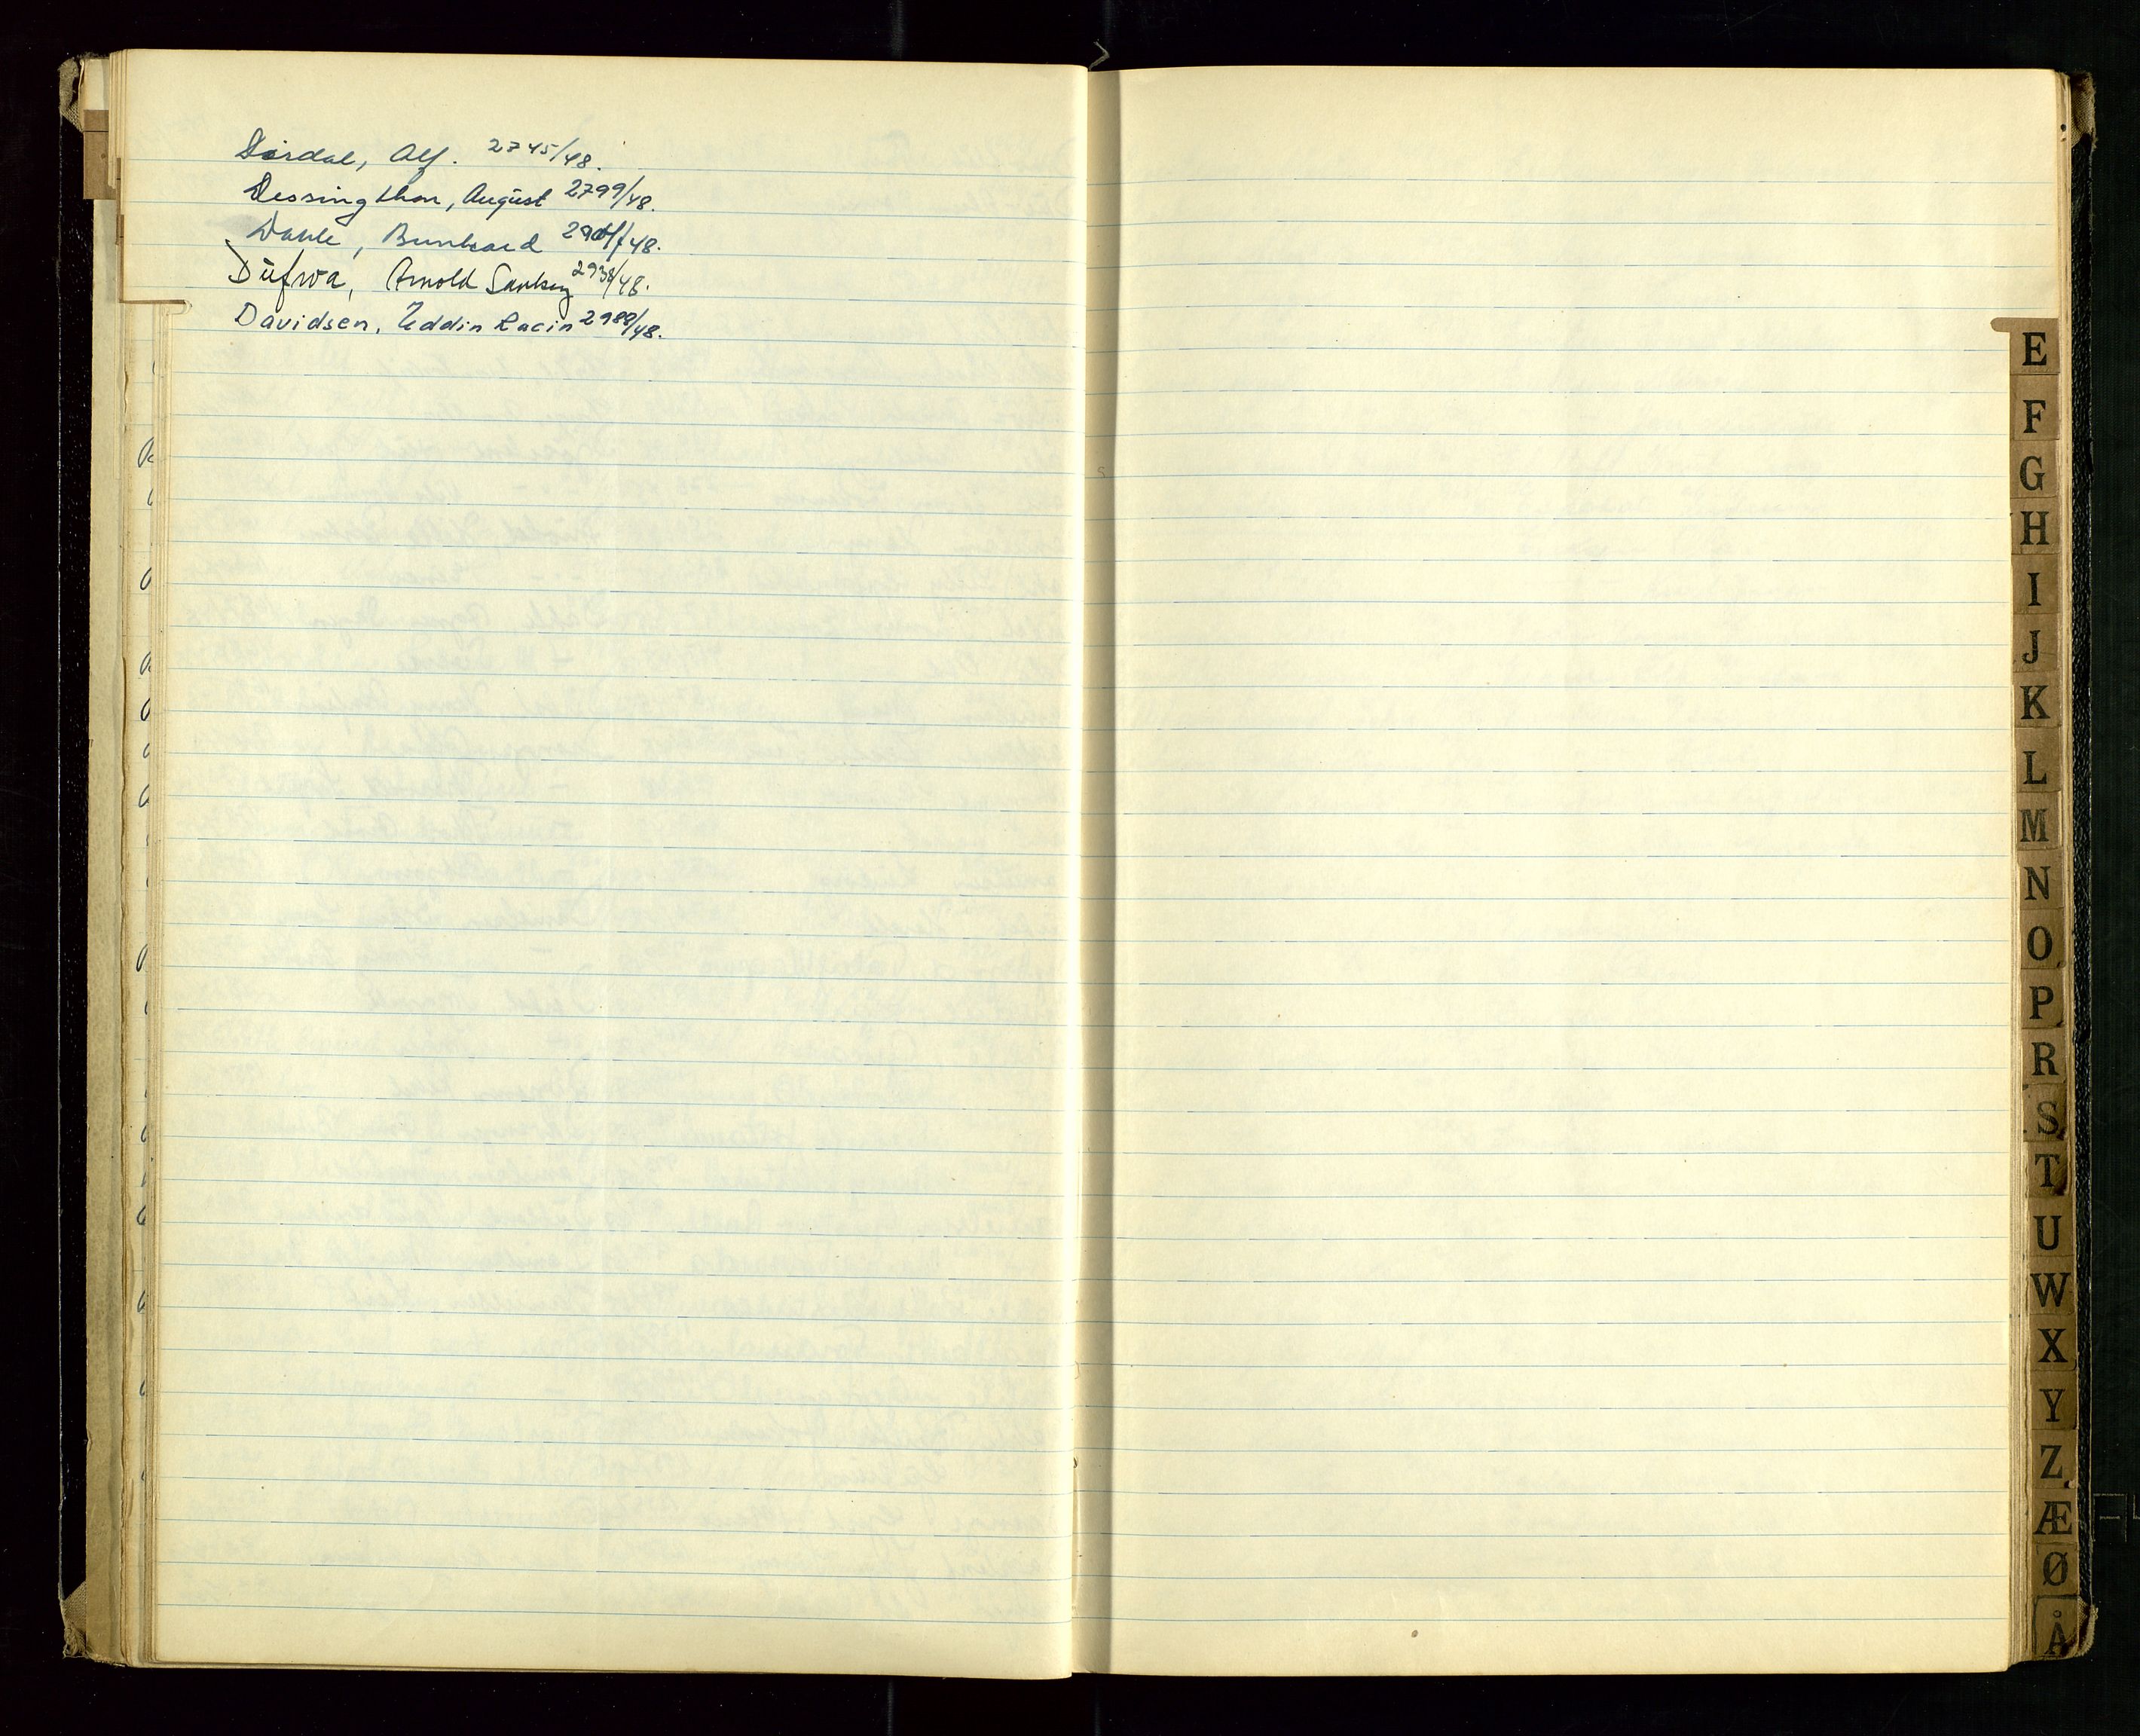 Dørdal, Alf. 2745/48.
Dessingthon, August 2799/48.
Dahle, Bernhard /48.
Düfwa, Arnold 2938/48.
Davidsen, Eddin Racin 2988/48.
E
F
G
H
I
J
K
L
M
N
O
P
R
S
T
U
W
X
Y
Z
Æ
Ø
Å